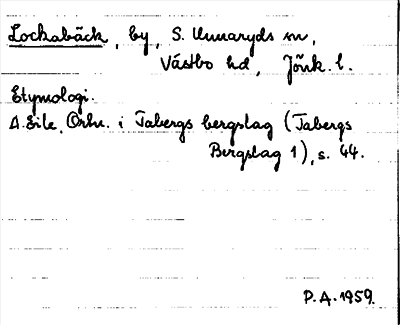 Lockabäck, by, S. Unnaryds sn,
Västbo hd, Jönk. l.
Etymologi.
A. Eile, Ortn. i Tabergs bergslag (Tabergs
Bergslag 1), s. 44.
P.A. 1959.